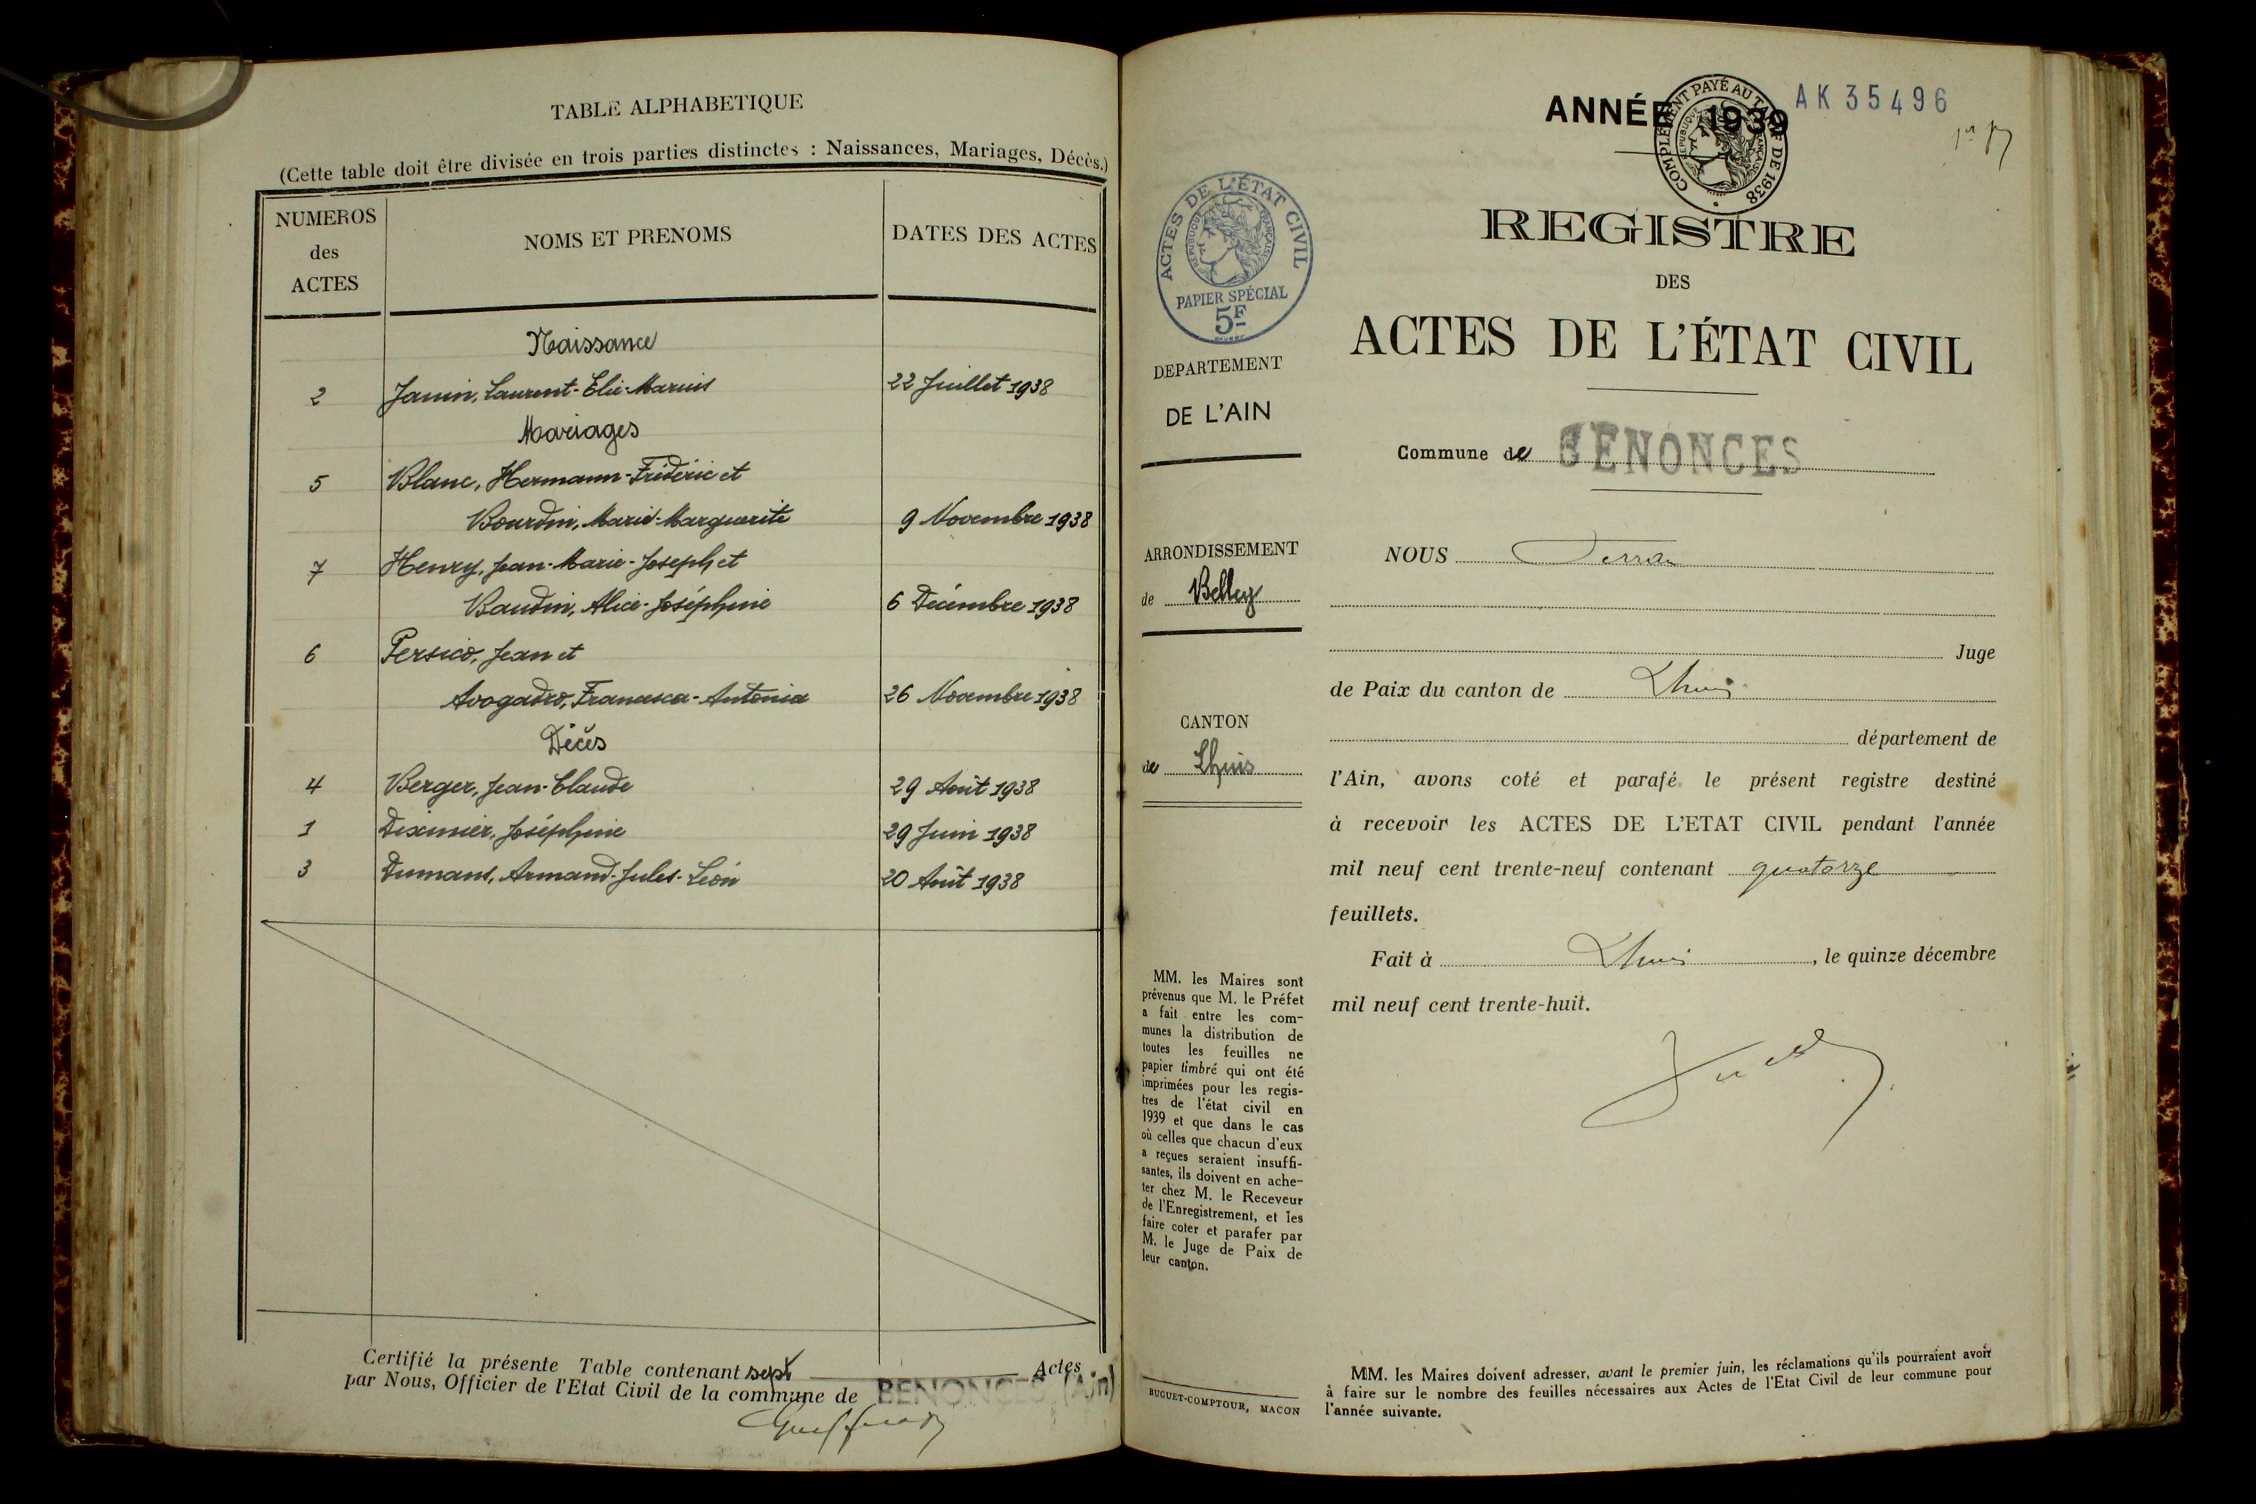 TABLE ALPHABETIQUE
(Cette table doit être divisée en trois parties distinctes : Naissances, Mariages, Décès.)
NUMEROS des ACTES
NOMS ET PRENOMS
DATES DES ACTES
Naissance
2 Janin, Laurent-Elie-Marius 22 Juillet 1938
Mariages
5 Blanc, Hermann-Frédéric et
Bourdin, Marie-Marguerite 9 Novembre 1938
7 Henry, Jean-Marie-Joseph et
Baudin, Alice-Joséphine 6 Décembre 1938
6 Persico, Jean et
Avogadro, Francesca-Antonia 26 Novembre 1938
Décès
4 Berger, Jean-Claude 29 Août 1938
1 Diximier, Joséphine 29 Juin 1938
3 Dumans, Armand-Jules-Léon 20 Août 1938
Certifié la présente Table contenant sept Actes
par Nous, Officier de l'Etat Civil de la commune de BENONCES (Ain)
ANNÉE 1939
COMPLÉMENT PAYÉ AU TARIF DE 1938
AK 35496
ACTES DE L'ÉTAT CIVIL
REPUBLIQUE FRANÇAISE
PAPIER SPÉCIAL
5F
DEPARTEMENT
DE L'AIN
ARRONDISSEMENT
de Belley
CANTON
de Lhuis
MM. les Maires sont
prévenus que M. le Préfet
a fait entre les com-
munes la distribution de
toutes les feuilles ne
papier timbré qui ont été
imprimées pour les regis-
tres de l'état civil en
1939 et que dans le cas
où celles que chacun d'eux
a reçues seraient insuffi-
santes, ils doivent en ache-
ter chez M. le Receveur
de l'Enregistrement, et les
faire coter et parafer par
M. le Juge de Paix de
leur canton.
BUGUET-COMPTOUR, MACON
REGISTRE
DES
ACTES DE L'ÉTAT CIVIL
Commune de BENONCES
NOUS
Juge
de Paix du canton de Lhuis
département de
l'Ain, avons coté et parafé le présent registre destiné
à recevoir les ACTES DE L'ETAT CIVIL pendant l'année
mil neuf cent trente-neuf contenant quatorze
feuillets.
Fait à Lhuis, le quinze décembre
mil neuf cent trente-huit.
MM. les Maires doivent adresser, avant le premier juin, les réclamations qu'ils pourraient avoir
à faire sur le nombre des feuilles nécessaires aux Actes de l'Etat Civil de leur commune pour
l'année suivante.